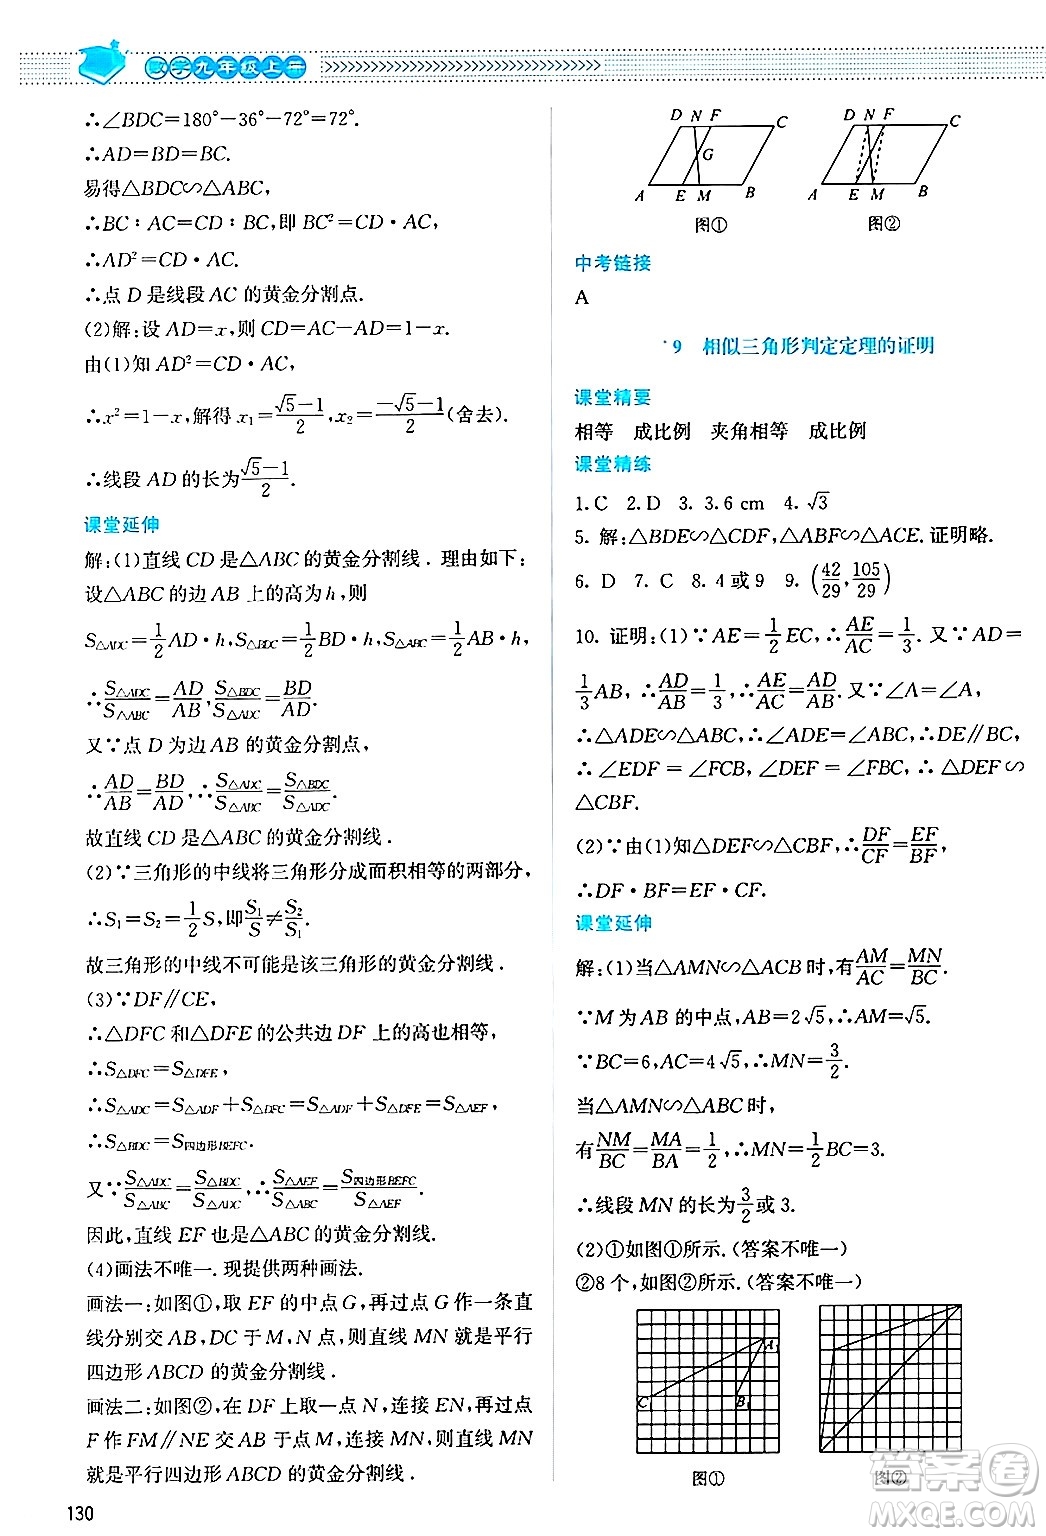 数学九年级上册
∴∠BDC=180°-36°-72°=72°.
∴AD=BD=BC.
易得△BDC∽△ABC,
∴BC∶AC=CD∶BC,即 BC²=CD·AC,
∴AD²=CD·AC.
∴点 D 是线段 AC 的黄金分割点.
(2)解:设 AD=x,则 CD=AC-AD=1-x.
由(1)知 AD²=CD·AC,
∴x²=1-x,解得 x₁=(√5-1)/2,x₂=(-√5-1)/2(舍去).
∴线段 AD 的长为(√5-1)/2.
课堂延伸
解:(1)直线 CD 是△ABC 的黄金分割线.理由如下:
设△ABC 的边 AB 上的高为 h,则
S△ADC=1/2 AD·h,S△BDC=1/2 BD·h,S△ABC=1/2 AB·h,
∴S△ADC/S△ABC=AD/AB,S△BDC/S△ADC=BD/AD.
又∵点 D 为边 AB 的黄金分割点,
∴AD/AB=BD/AD,∴S△ADC/S△ABC=S△BDC/S△ADC.
故直线 CD 是△ABC 的黄金分割线.
(2)∵三角形的中线将三角形分成面积相等的两部分,
∴S₁=S₂=1/2 S,即S₁/S≠S₂/S₁.
故三角形的中线不可能是该三角形的黄金分割线.
(3)∵DF∥CE,
∴△DFC 和△DFE 的公共边 DF 上的高也相等,
∴S△DFC=S△DFE,
∴S△ADC=S△ADF+S△DFC=S△ADF+S△DFE=S△AEF,
∴S△BDC=S四边形BEFC.
又∵S△ADC/S△ABC=S△BDC/S△ADC,∴S△AEF/S△ABC=S四边形BEFC/S△AEF
因此,直线 EF 也是△ABC 的黄金分割线.
(4)画法不唯一.现提供两种画法.
画法一:如图①,取 EF 的中点 G,再过点 G 作一条直
线分别交 AB,DC 于 M,N 点,则直线 MN 就是平行
四边形 ABCD 的黄金分割线.
画法二:如图②,在 DF 上取一点 N,连接 EN,再过点
F 作 FM∥NE 交 AB 于点 M,连接 MN,则直线 MN
就是平行四边形 ABCD 的黄金分割线.
130
D N F C
G
A E M B
图①
D N F C
A E M B
图②
中考链接
A
*9 相似三角形判定定理的证明
课堂精要
相等 成比例 夹角相等 成比例
课堂精练
1.C 2.D 3. 3.6 cm 4.√3
5. 解:△BDE∽△CDF,△ABF∽△ACE.证明略.
6. D 7. C 8. 4 或 9 9. (42/29,105/29)
10. 证明:(1)∵AE=1/2 EC,∴AE/AC=1/3. 又∵AD=
1/3 AB,∴AD/AB=1/3,∴AE/AC=AD/AB.又∵∠A=∠A,
∴△ADE∽△ABC,∴∠ADE=∠ABC,∴DE∥BC,
∴∠EDF=∠FCB,∠DEF=∠FBC,∴△DEF∽
△CBF.
(2)∵由(1)知△DEF∽△CBF,∴DF/CF=EF/BF,
∴DF·BF=EF·CF.
课堂延伸
解:(1)当△AMN∽△ACB 时,有AM/AC=MN/BC.
∵M 为 AB 的中点,AB=2√5,∴AM=√5.
∵BC=6,AC=4√5,∴MN=3/2.
当△AMN∽△ABC 时,
有NM/BC=MA/BA=1/2,∴MN=1/2 BC=3.
∴线段 MN 的长为3/2或 3.
(2)①如图①所示.(答案不唯一)
②8 个,如图②所示.(答案不唯一)
A₁
C
B₁
图①
图②
答案圈
MXQE.COM